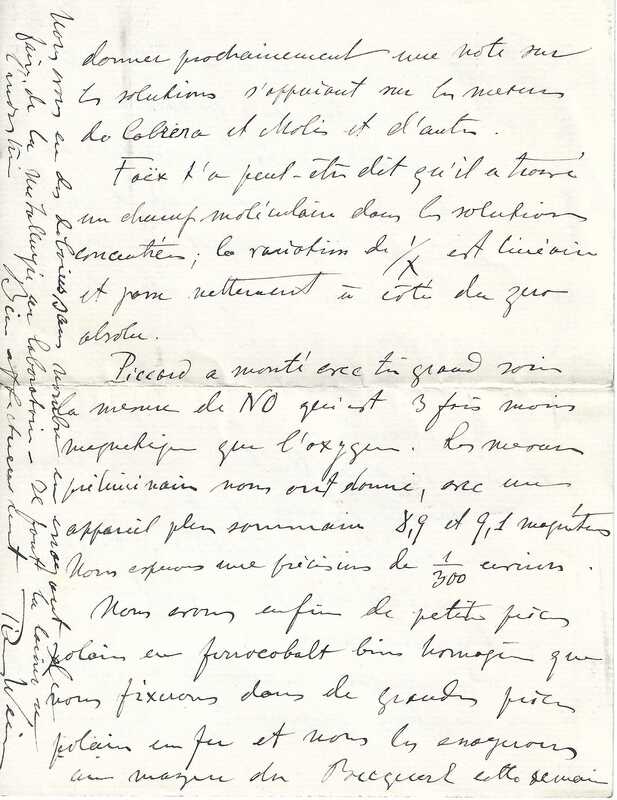 donner prochainement une note sur
les solutions s'appuiant sur les mesures
de Cabrera et Moles et d'autres.
Foëx t'a peut-être dit qu'il a trouvé
un champ moléculaire dans les solutions
concentrées; la variation de 1/χ est linéaire
et passe nettement à côté du zéro
absolu.
Piccard a monté avec très grand soin
la mesure de NO qui est 3 fois moins
magnétique que l'oxygène. Les mesures
préliminaires nous ont donné, avec un
appareil plus sommaire 8,9 et 9,1 magnétons
Nous espérons une précision de 1/300 environ.
Nous avons enfin de petites pièces
polaires en ferrocobalt bien homogène que
nous fixerons dans de grandes pièces
polaires en fer et nous les essayerons
au Becquerel cette semaine
Nous avons eu des déboires sans nombre en essayant de
faire de la métallurgie au laboratoire
l'industrie
Bien affectueusement P. Weiss